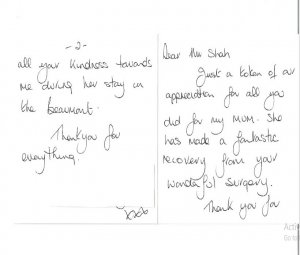 Dear Mr Shah
Just a token of our
appreciation for all you
did for my MUM. She
has made a fantastic
recovery from your
wonderful surgery.
Thank you for
-2-
all your kindness towards
me during her stay in
the Beaumont.
Thankyou for
everything.
xxx
Acti
Go to